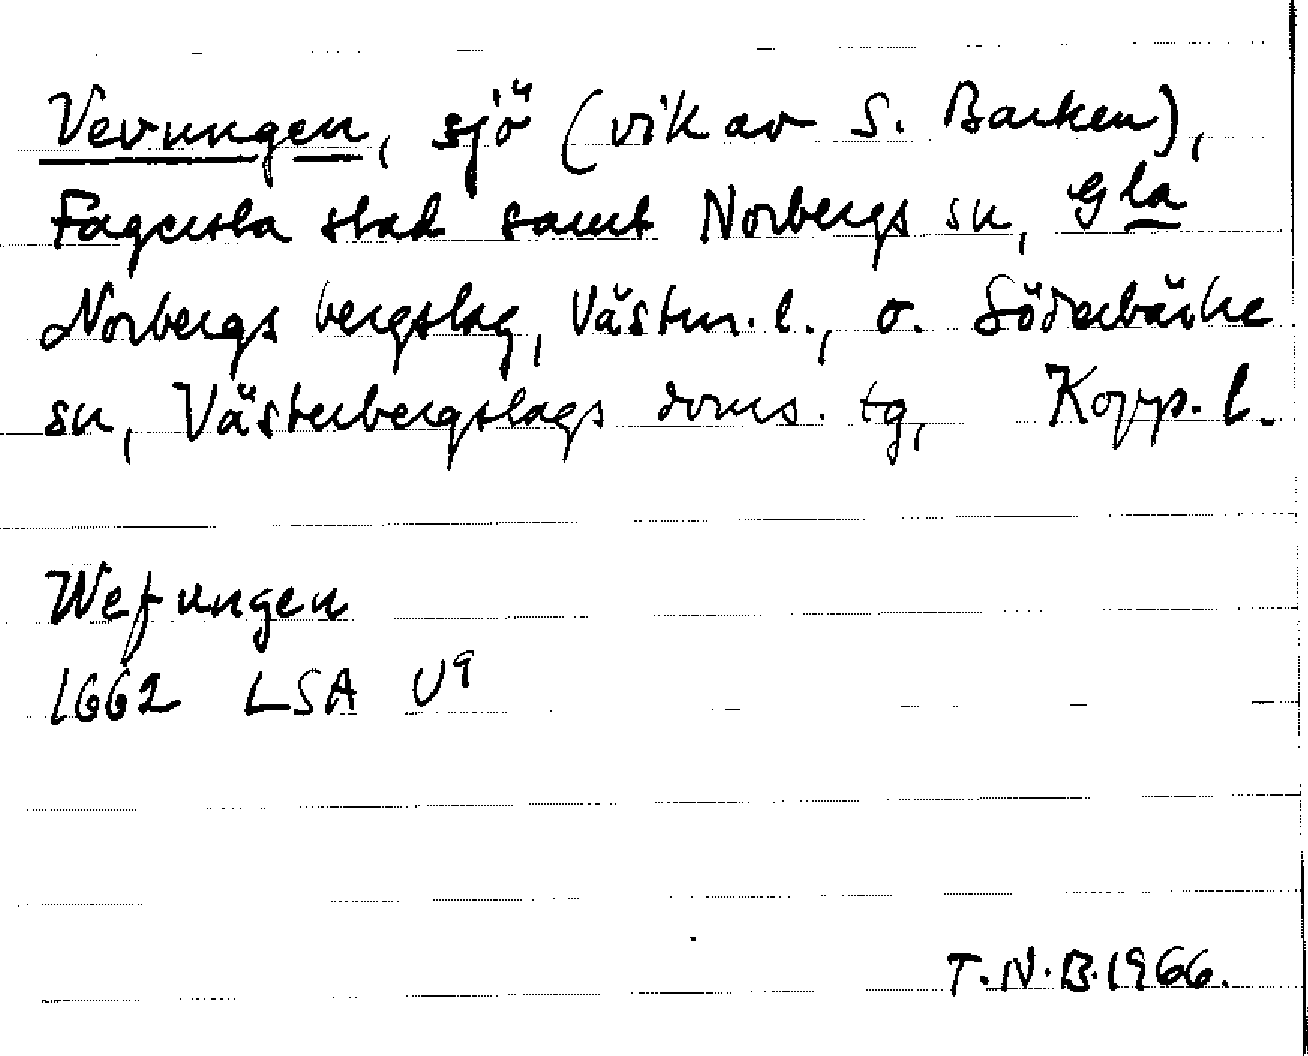 Vevungen, sjö (vik av S. Barken),
Fagersta stad samt Norbergs sn, Gla
Norbergs bergslag, Västm. l., o. Söderbärke
sn, Västerbergslags doms. tg, Kopp. l.
Wefungen
1662 LSA U9
T.N.B. 1966.